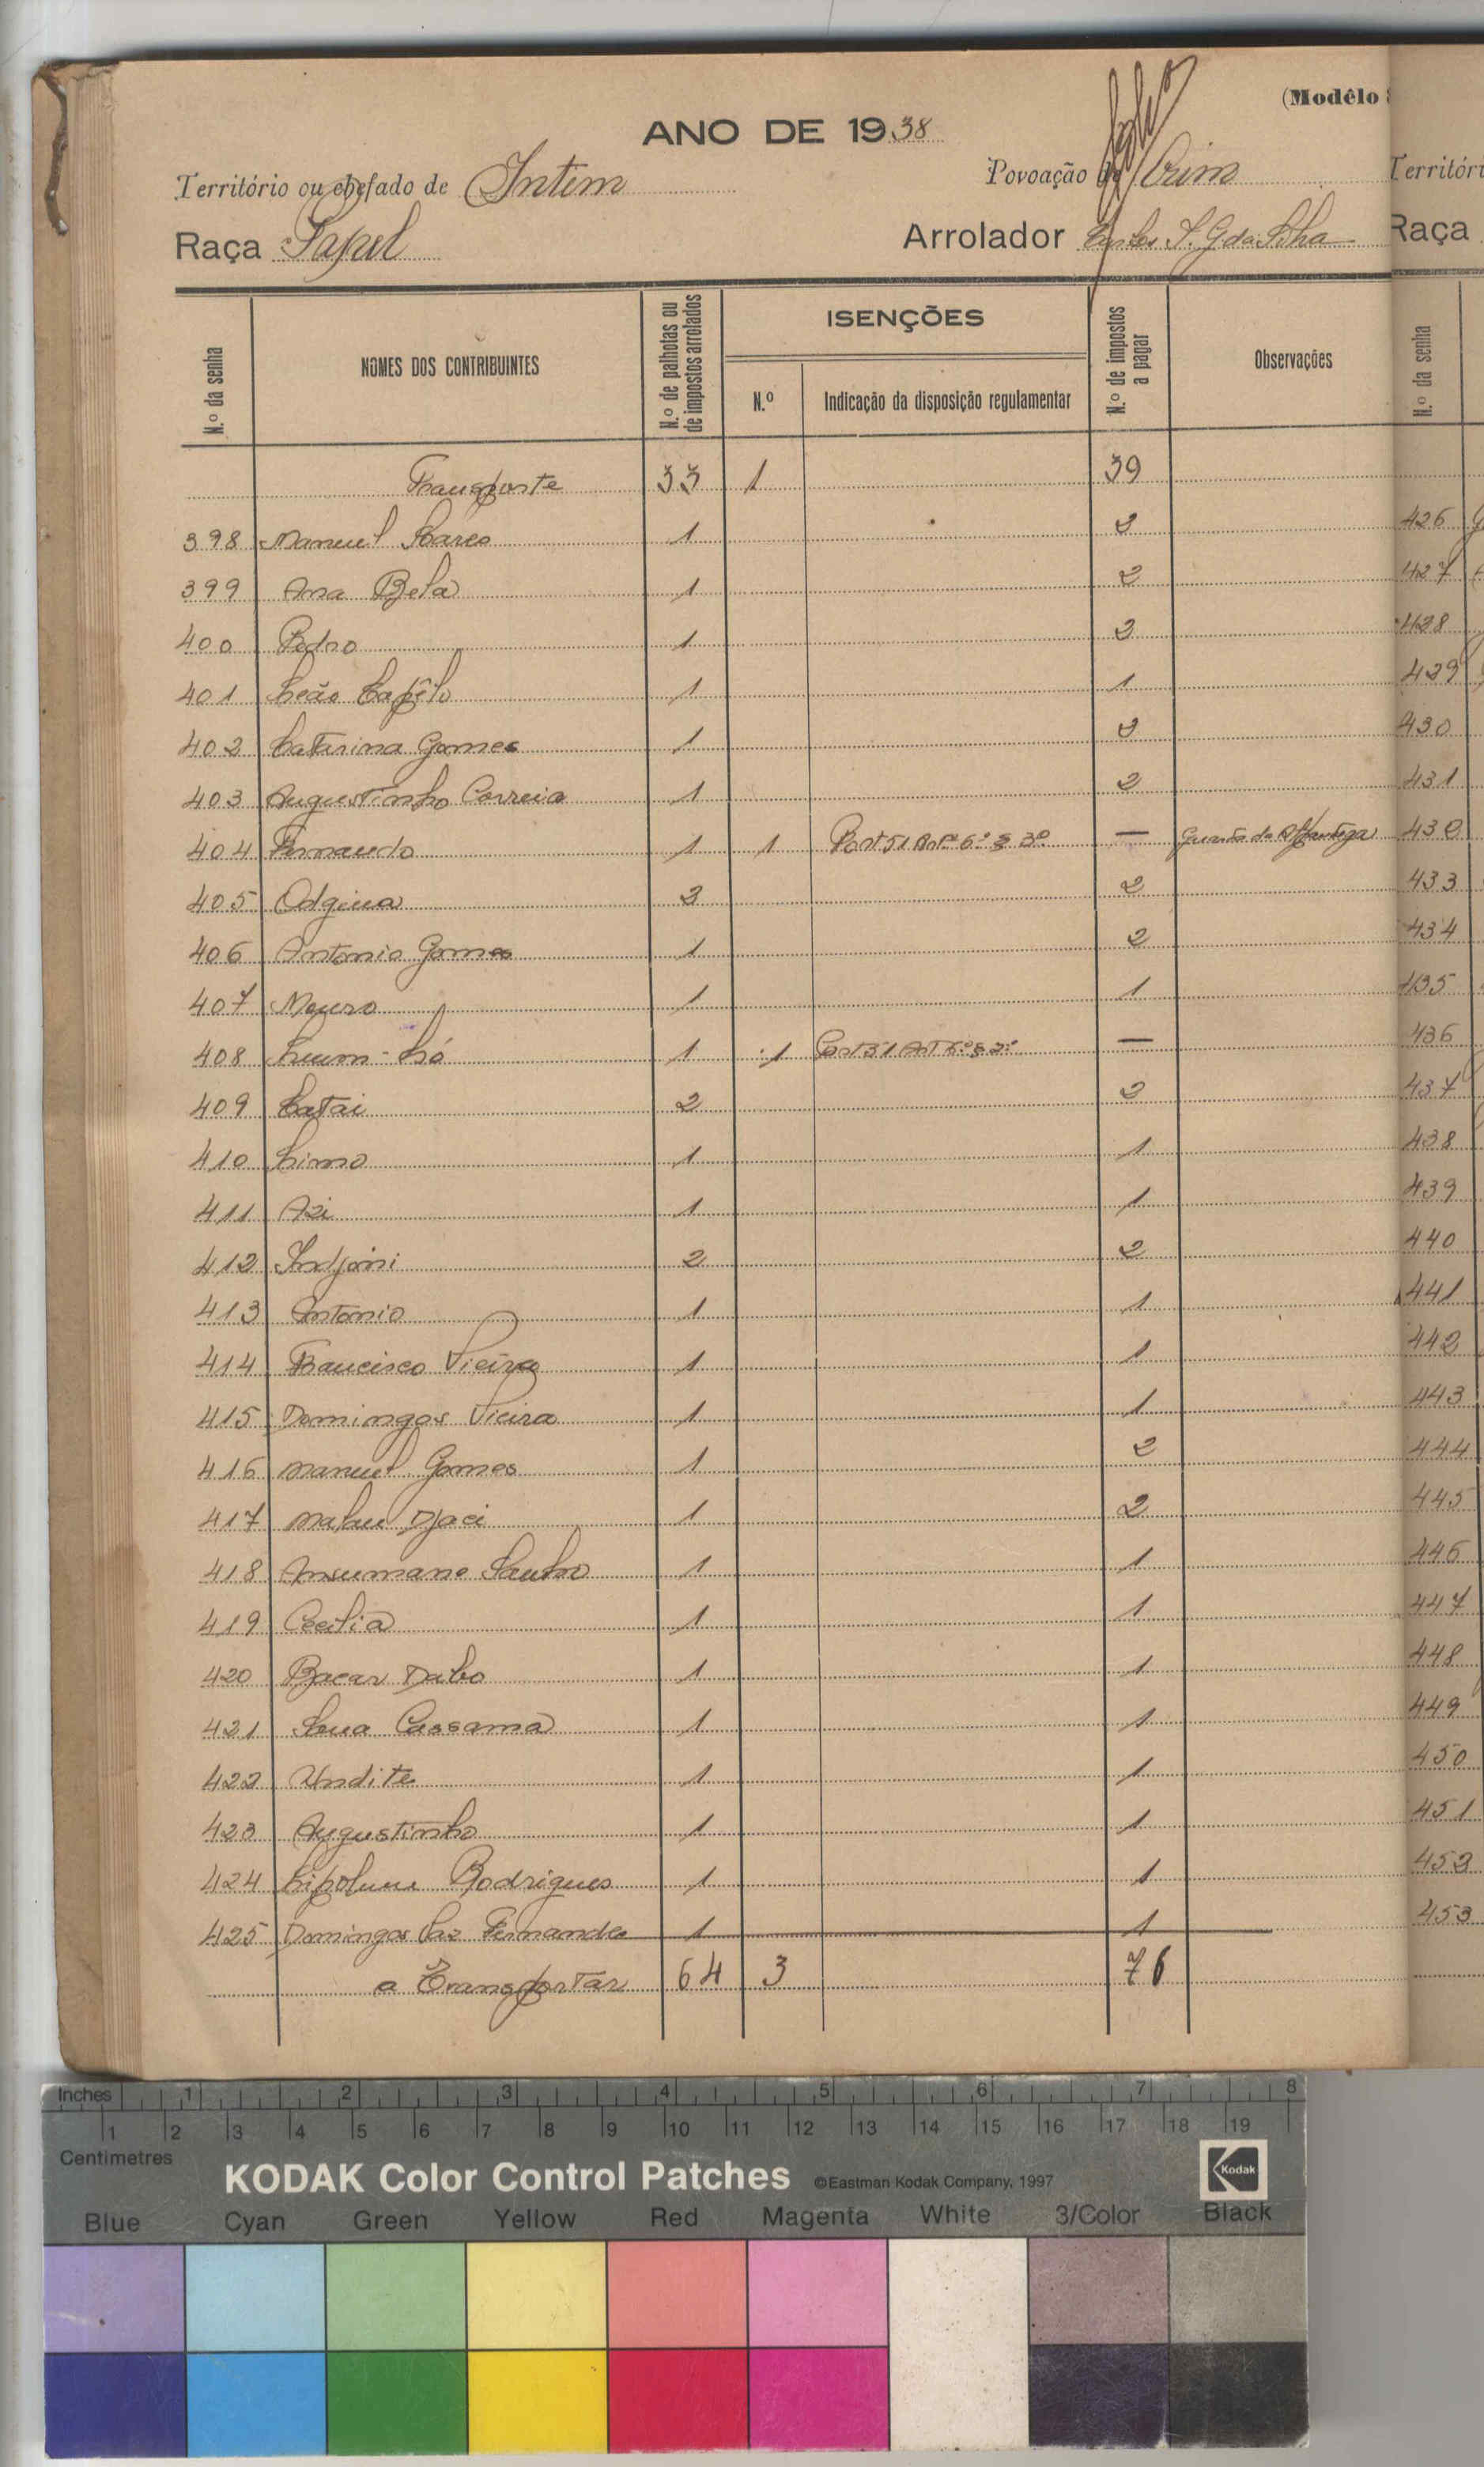 (Modêlo
ANO DE 1938
Território ou chefado de Intim Povoação de
Raça Papel Arrolador
N.º da senha NOMES DOS CONTRIBUINTES N.º de palhotas ou de impostos arrolados ISENÇÕES N.º Indicação da disposição regulamentar N.º de impostos a pagar Observações
Transporte 33 1 39
398 Manuel Soares 1 2
399 Ana Bela 1 2
400 Pedro 1 2
401 Leão Capêlo 1 1
402 Catarina Gomes 1 2
403 Augustinho Correia 1 2
404 Fernando 1 1 Port 51 Artº 6º § 3º — Guarda da Alfandega
405 Odgina 2 2
406 Antonio Gomes 1 2
407 1 1
408 1 1 — 
409 Catai 2 2
410 Limo 1 1
411 Azi 1 1
412 Indjini 2 2
413 Antonio 1 1
414 Francisco Vieira 1 1
415 Domingos Vieira 1 1
416 Manuel Gomes 1 2
417 Malau Djaci 1 2
418 Ansumane 1 1
419 Cecilia 1 1
420 Bacar Dabo 1 1
421 Cassama 1 1
422 Undite 1 1
423 Augustinho 1 1
424 Rodrigues 1 1
425 Domingos Fernandes 1 1
a Transportar 64 3 76
Territóri
Raça
N.º da senha
426
427
428
429
430
431
433
434
435
436
437
438
439
440
441
442
443
444
445
446
447
448
449
450
451
452
453
Inches 1 2 3 4 5 6 7 8
1 2 3 4 5 6 7 8 9 10 11 12 13 14 15 16 17 18 19
Centimetres
KODAK Color Control Patches ©Eastman Kodak Company, 1997 Kodak
Blue Cyan Green Yellow Red Magenta White 3/Color Black